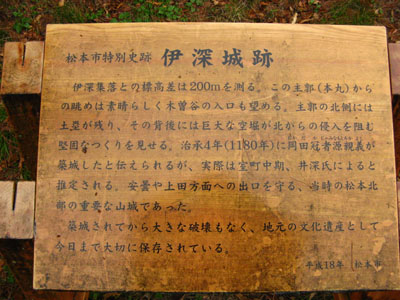 松本市特別史跡 伊深城跡
伊深集落との標高差は200mを測る。この主郭(本丸)から
の眺めは素晴らしく木曽谷の入口も望める。主郭の北側には
土塁が残り、その背後には巨大な空堀が北からの侵入を阻む
堅固なつくりを見せる。治承4年(1180年)に岡田冠者源親義が
築城したと伝えられるが、実際は室町中期、井深氏によると
推定される。安曇や上田方面への出口を守る、当時の松本北
部の重要な山城であった。
築城されてから大きな破壊もなく、地元の文化遺産として
今日まで大切に保存されている。
平成18年 松本市